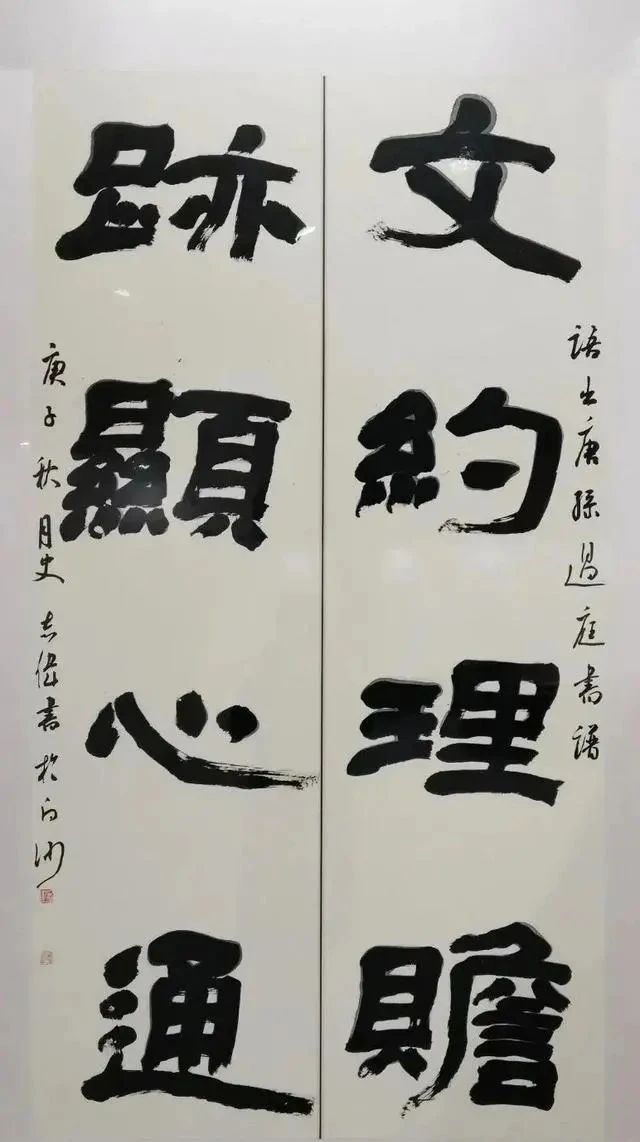 語出唐孫過庭書譜
文約理贍
跡顯心通
庚子秋月史志偉書於